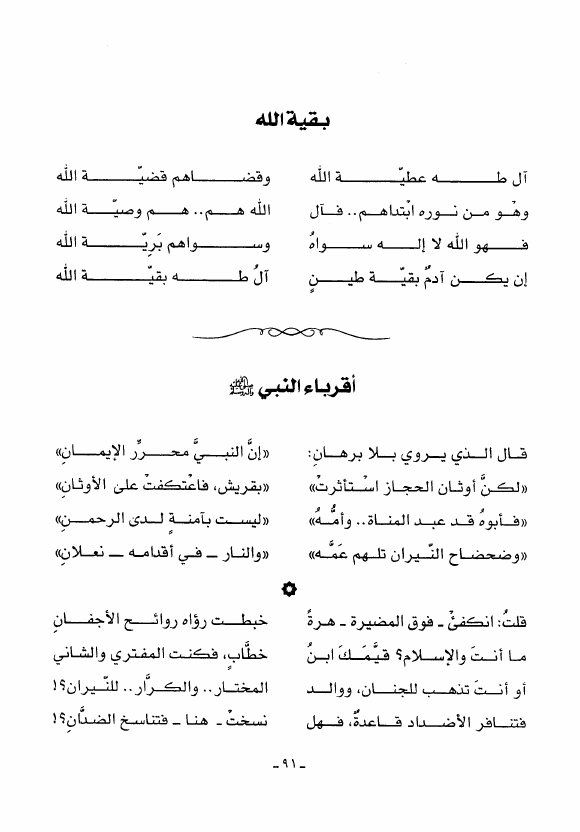 بقية الله
آل طه عطيّة الله وقضاهم قضيّة الله
وهُو من نوره ابْتداهم.. فآل الله هم.. هم وصيّة الله
فهو الله لا إله سواهُ وسواهم بَرِيّة الله
إن يكن آدمٌ بقيّة طينٍ آلُ طه بقيّة الله
أقرباء النبي ﷺ
قال الذي يروي بلا برهانِ: «إنَّ النبيَّ محرِّر الإيمانِ»
«لكنَّ أوثان الحجاز استأثرتْ» «بقريش، فاعْتكفتْ على الأوثانِ»
«فأبوهُ قد عبد المناة.. وأمُّهُ» «ليست بآمنةٍ لدى الرحمنِ»
«وضحضاح النّيران تلهم عَمَّه» «والنار ـ في أقدامه ـ نعلانِ»
قلتُ: انكفئْ ـ فوق المضيرة ـ هرةً خبطت رؤاه روائح الأجفانِ
ما أنتَ والإسلام؟ قيَّمَكَ ابنُ خطَّابٍ، فكنت المفتري والشاني
أو أنتَ تذهب للجنان، ووالد المختار.. والكرَّار.. للنّيران؟!
فتنافر الأضداد قاعدةٌ، فهل نسختْ ـ هنا ـ فتناسخ الضدَّانِ؟!
ـ ٩١ ـ